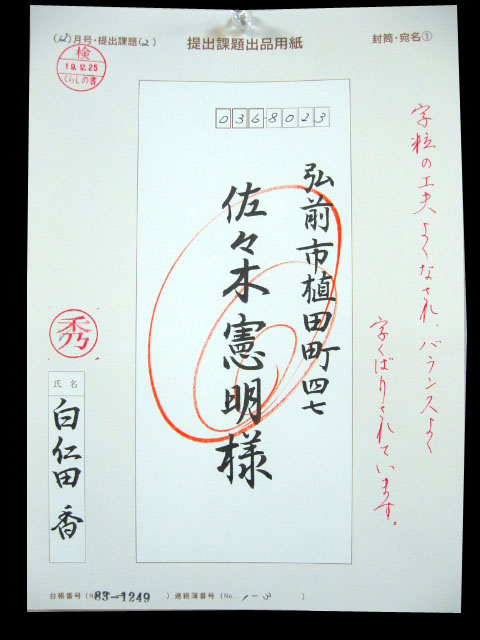 (12)月号・提出課題(2)
提出課題出品用紙
封筒・宛名①
検
19.12.25
くらしの書
036-8023
弘前市植田町四七
佐々木憲明様
字粒の工夫よくなされ、バランスよく
字くばりされています。
秀
氏名
白仁田香
台帳番号(No.83-1249)連絡簿番号(No.1-3)